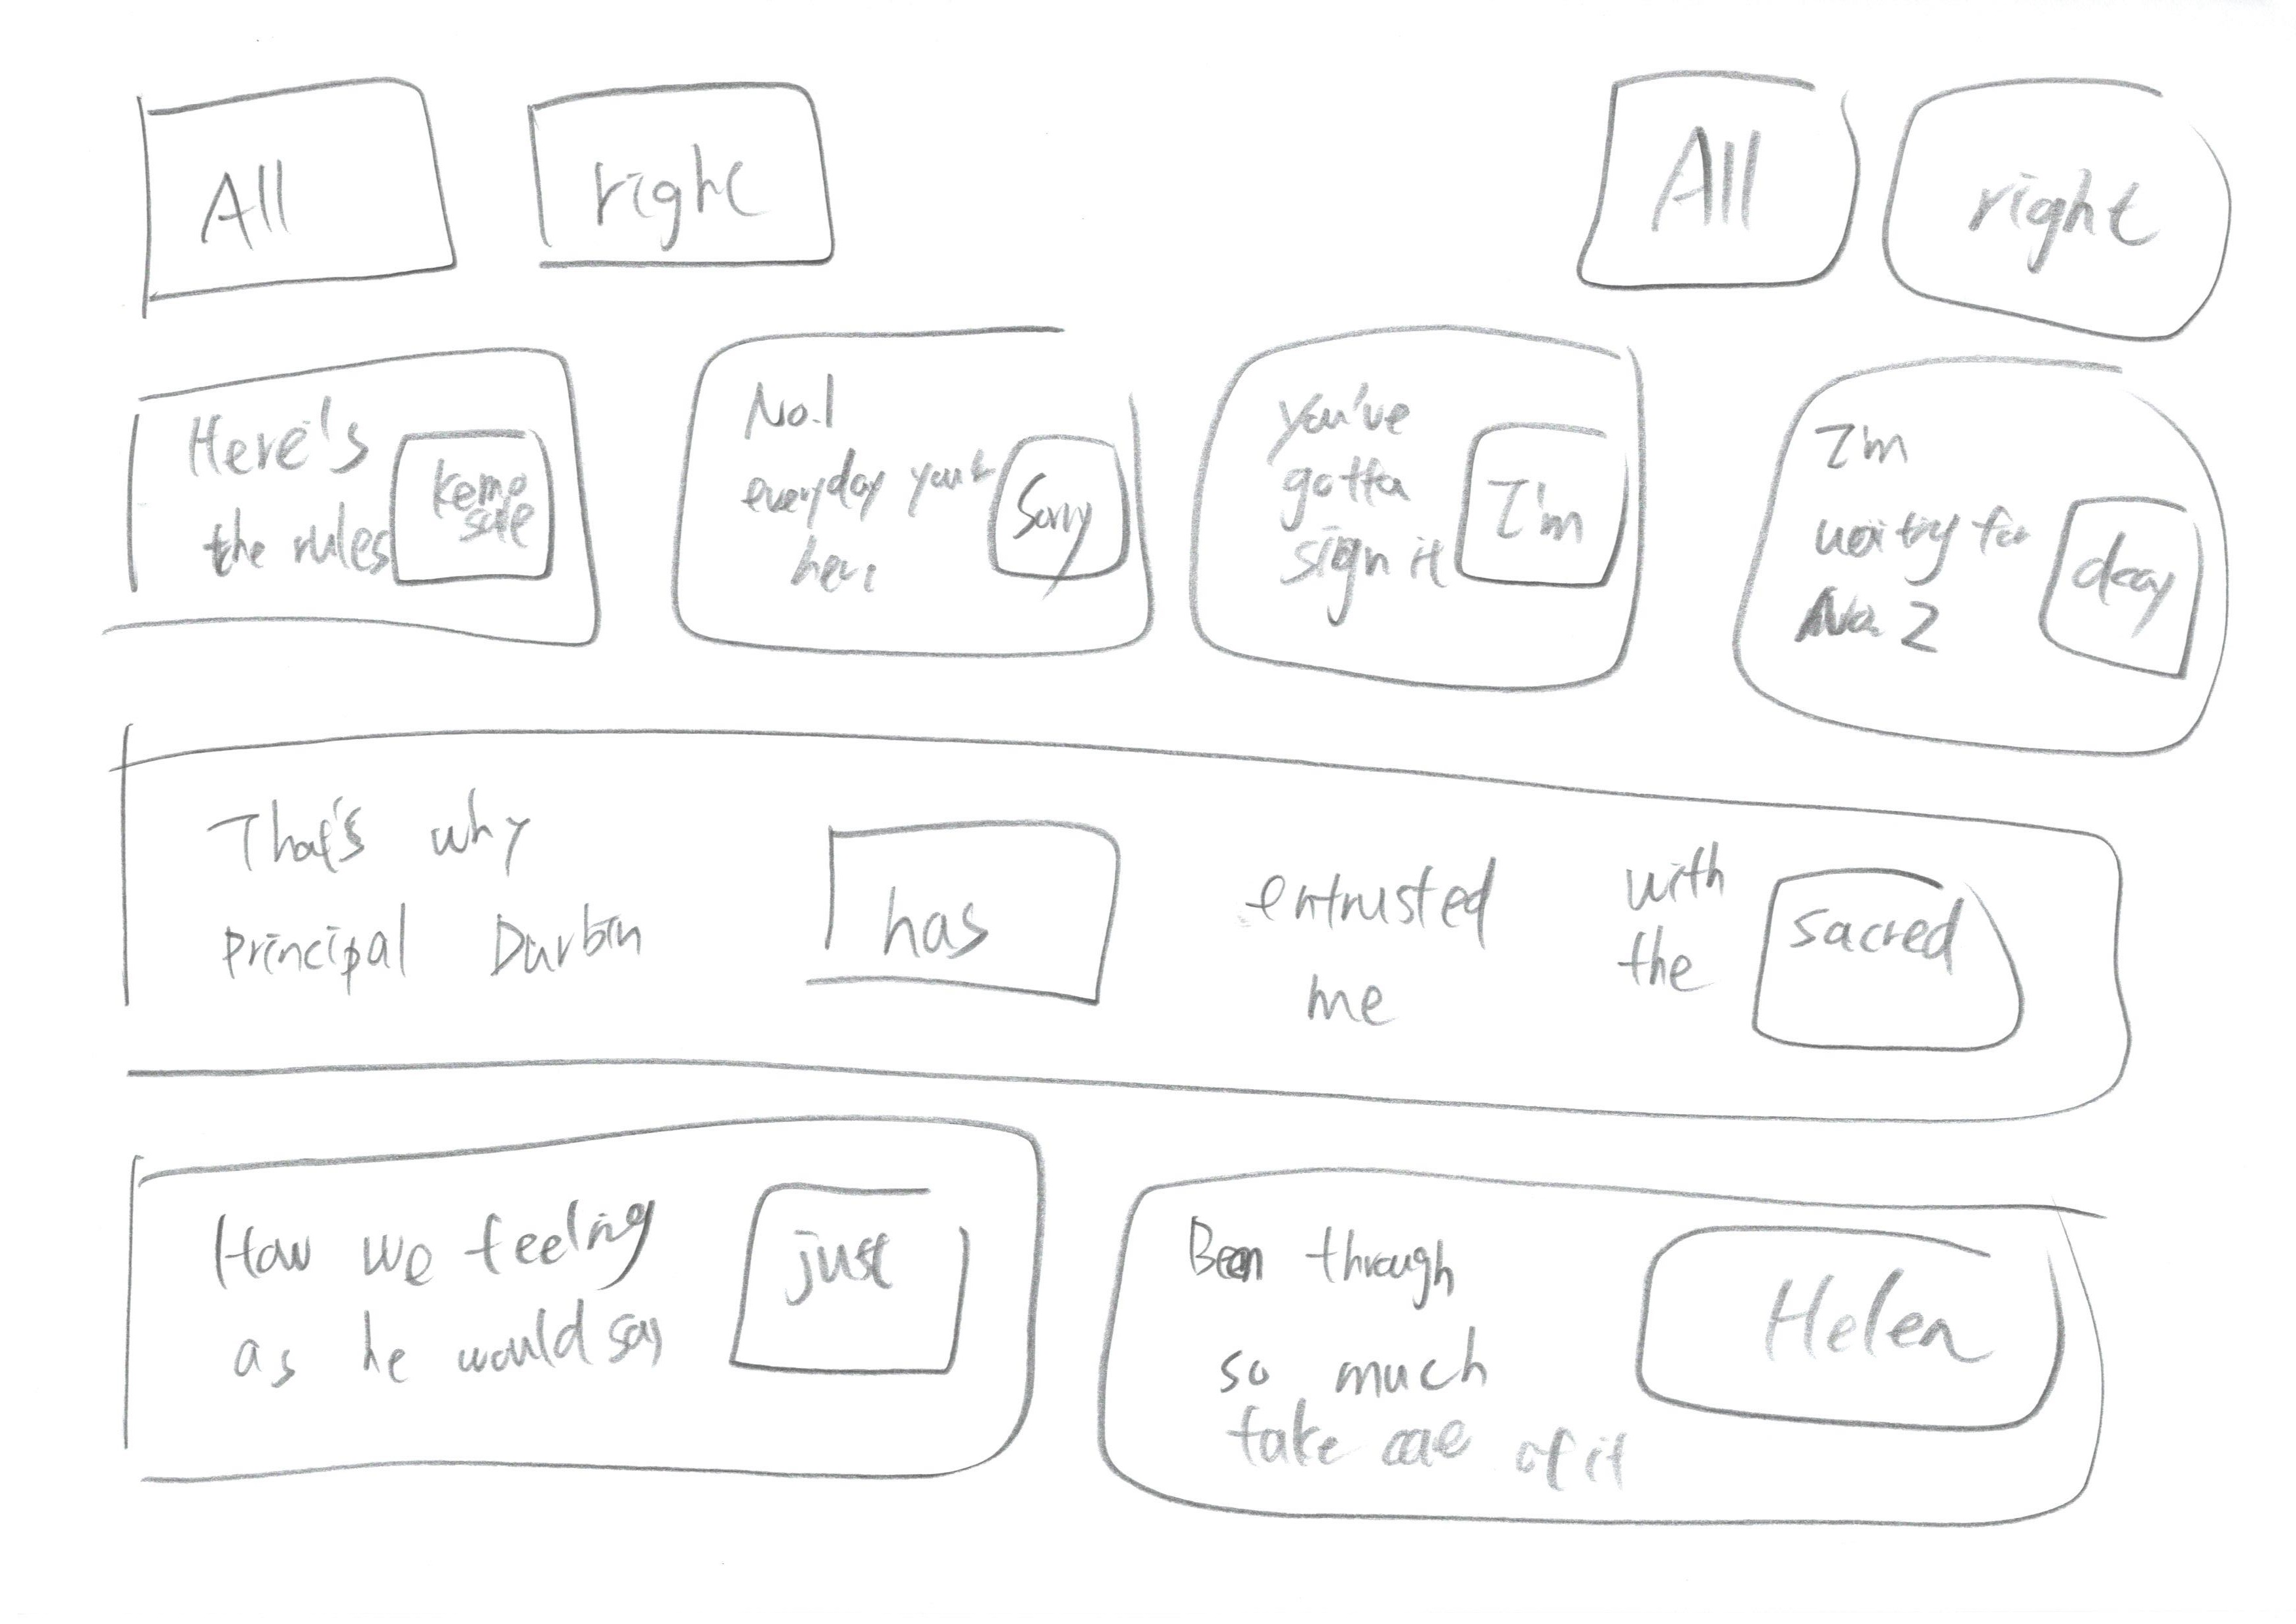 All right All right
Here's
the rules
kemo
sabe
No.1
everyday
here
Sorry
you've
gotta
sign it
I'm
I'm
No. 2
That's why
principal Durbin
has
entrusted
me
with
the
sacred
How we feeling
as he would say
just
Been through
so much
take care of it
Helen